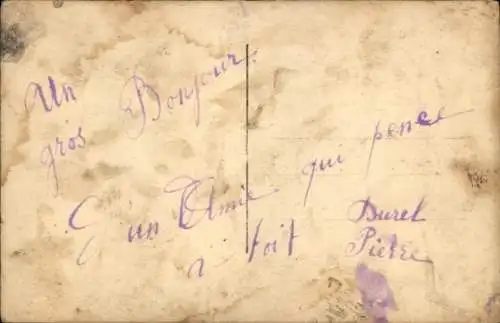 Un
gros Bonjour
G un Elmie qui pence
a toit
Durel
Pierre